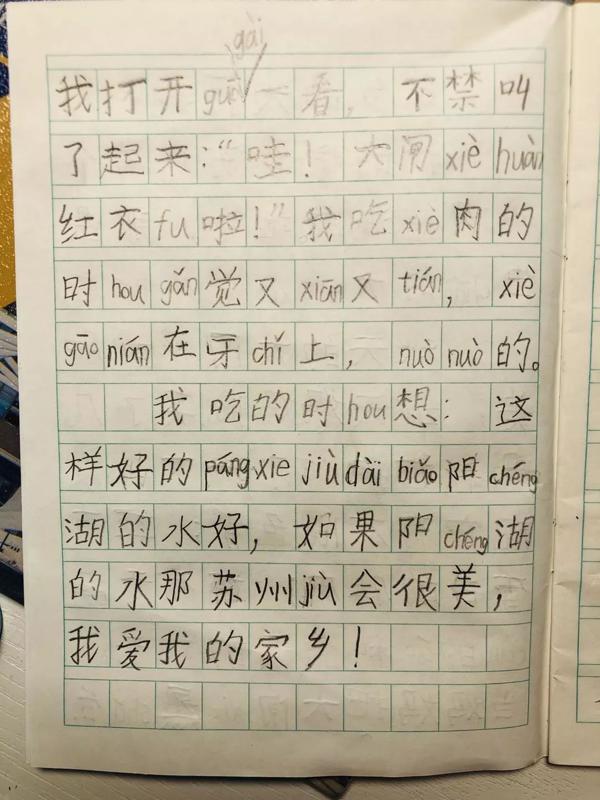 gài
我打开guì一看，不禁叫
了起来：“哇！大闸xiè huàn
红衣fu啦！”我吃xiè肉的
时hou gǎn觉又xiān又tián，xiè
gāo nián在牙chǐ上，nuò nuò的。
我吃的时hou想：这
样好的páng xie jiù dài biǎo阳chéng
湖的水好，如果阳chéng湖
的水那苏州jiù会很美，
我爱我的家乡！